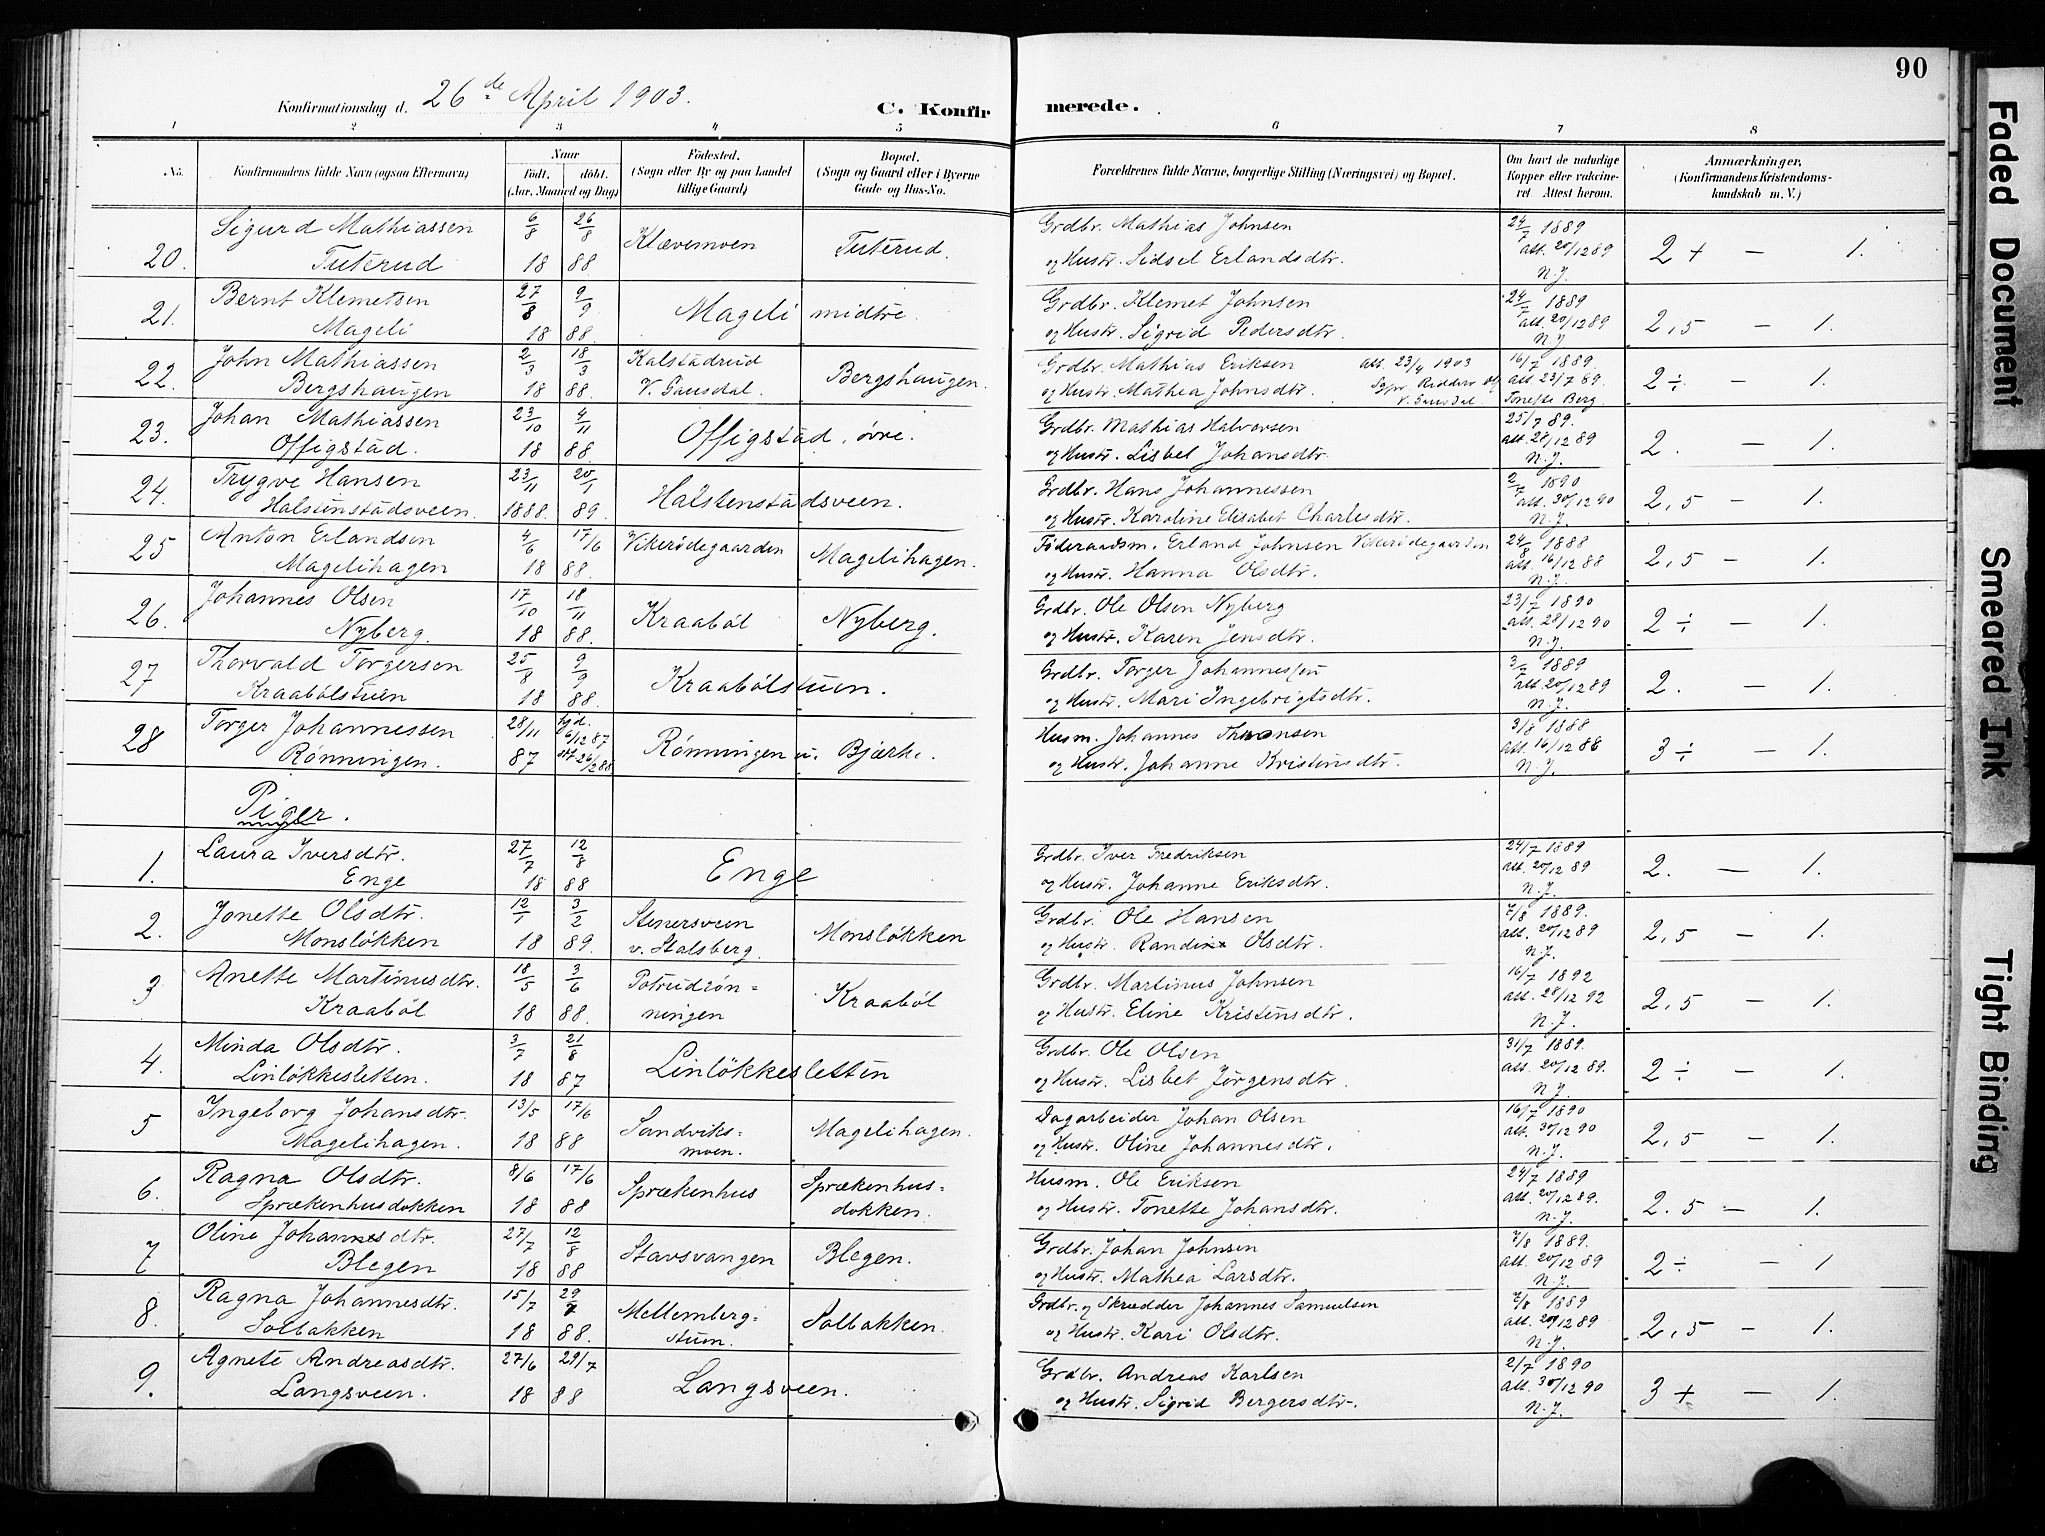 90
Konfirmationsdag d. 26de April 1903.
C. Konfirmerede.
1 2 3 4 5 6 7 8
No. Konfirmandens fulde Navn (ogsaa Efternavn) Naar født. døbt. (Aar, Maaned og Dag) Fødested. (Sogn eller By og paa Landet tillige Gaard) Bopæl. (Sogn og Gaard eller i Byerne Gade og Hus-No. Forældrenes fulde Navne, borgerlige Stilling (Næringsvei) og Bopæl. Om havt de naturlige Kopper eller vaccineret. Attest herom. Anmærkninger, (Konfirmandens Kristendomskundskab m. V.)
20. Sigurd Mathiassen 6/8 26/8 Klævemoen Tuterud. Grdbr. Mathias Johnsen 24/7 1889
Tuterud 18 88 og Hustr. Sidsel Erlandsdtr. att. 20/12 89 N.J. 2+ — 1.
21. Bernt Klemetsen 27/8 9/9 Mageli midtre. Grdbr. Klemet Johnsen 24/7 1889
Mageli 18 88. og Hustr. Sigrid Pedersdtr. att. 20/12 89 N.J 2,5 — 1.
22. John Mathiassen 2/3 18/3 Kalstadrud Bergshaugen. Grdbr. Mathias Eriksen att. 23/4 1903 16/7 1889.
Bergshaugen 18 88. V. Gausdal. og Hustr. Mathea Johnsdtr. V. Gausdal. att. 23/7 89. Tonette Berg. 2÷ — 1.
23. Johan Mathiassen 23/10 4/11 Offigstad, øvre. Grdbr. Mathias Halvorsen 25/7 89.
Offigstad. 18 88 og Hustr. Lisbet Johansdtr. att. 28/12 89 N.J. 2. — 1.
24. Trygve Hansen 23/11 20/1 Halstenstadsveen. Grdbr. Hans Johannessen 2/7 1890
Halstenstadsveen. 1888. 89. og Hustr. Karoline Elisabet Charlesdtr. att. 30/12 90 N.J. 2,5 — 1.
25 Anton Erlandsen 4/6 17/6 Vikerødegaarden Magelihagen. Føderaadsm. Erland Johnsen Vikerødegaarden 24/8 1888
Magelihagen 18 88. og Hustr. Hanna Olsdtr. att. 16/12 88 N.J. 2,5 — 1.
26. Johannes Olsen 17/10 18/11 Kraabøl Nyberg. Grdbr. Ole Olsen Nyberg 23/7 1890
Nyberg. 18 88. og Hustr. Karen Jensdtr. att. 28/12 90 N.J. 2÷ — 1.
27 Thorvald Torgersen 25/8 9/9 Kraabølstuen. Grdbr. Torger Johannessen 3/7 1889
Kraabølstuen 18 88. og Hustr. Mari Ingebrigtsdtr. att. 20/12 89 N.J. 2. — 1.
28 Torger Johannessen 28/11 hjd. 6/12 87 Rønningen u. Bjærke. Husm. Johannes 3/8 1888
Rønningen. 87 st. 26/12 88 og Hustr. Johanne Kristensdtr. att. 16/12 88 N.J. 3÷ — 1.
Piger.
1. Laura Iversdtr. 27/7 12/8 Enge Grdbr. Iver Fredriksen 24/7 1889
Enge 18 88 og Hustr. Johanne Eriksdtr. att. 20/12 89 N.J. 2. — 1.
2. Jonette Olsdtr. 12/1 3/2 Stenersveen Monsløkken Grdbr. Ole Hansen 7/8 1889.
Monsløkken 18 89. v. Stalsberg. og Hustr. Randine Olsdtr. att. 20/12 89 N.J. 2,5 — 1.
3 Anette Martinusdtr. 18/5 3/6 Potrudrøn- Kraabøl Grdbr. Martinus Johnsen 16/7 1892
Kraabøl 18 88. ningen og Hustr. Eline Kristensdtr. att. 28/12 92 N.J. 2,5 — 1.
4. Minda Olsdtr. 3/7 21/8 Linløkkesletten Grdbr. Ole Olsen 31/7 1889.
Linløkkesletten. 18 87 og Hustr. Lisbet Jørgensdtr. att. 20/12 89. N.J. 2÷ — 1.
5 Ingeborg Johansdtr. 13/5 17/6 Sandviks- Magelihagen. Dagarbeider Johan Olsen 16/7 1890
Magelihagen. 18 88 moen. og Hustr. Oline Johannesdtr. att. 30/12 90 N.J. 2,5 — 1.
6. Ragna Olsdtr. 8/6 17/6 Sprækenhus Sprækenhus- Husm. Ole Eriksen 24/7 1889
Sprækenhusdokken 18 88 dokken. og Hustr. Tonette Johansdtr. att. 20/12 89. N.J. 2.5 — 1.
7 Oline Johannesdtr. 27/7 12/8 Stavsvangen Blegen. Grdbr. Johan Johnsen 7/8 1889.
Blegen 18 88 og Hustr. Mathea Larsdtr. att. 20/12 89 N.J. 2÷ — 1
8. Ragna Johannesdtr. 15/7 29/7 Mellemberg- Solbakken. Grdbr. og Skrædder Johannes Samuelsen 7/8 1889
Solbakken 18 88. stuen. og Hustr. Kari Olsdtr. att. 20/12 89 N.J. 2,5 — 1.
9. Agnete Andreasdtr. 27/6 29/7 Langsveen. Grdbr. Andreas Karlsen 2/7 1890
Langsveen. 18 88 og Hustr. Sigrid Bergersdtr. att. 30/12 90 N.J. 3+ — 1.
Faded Document
Smeared Ink
Tight Binding